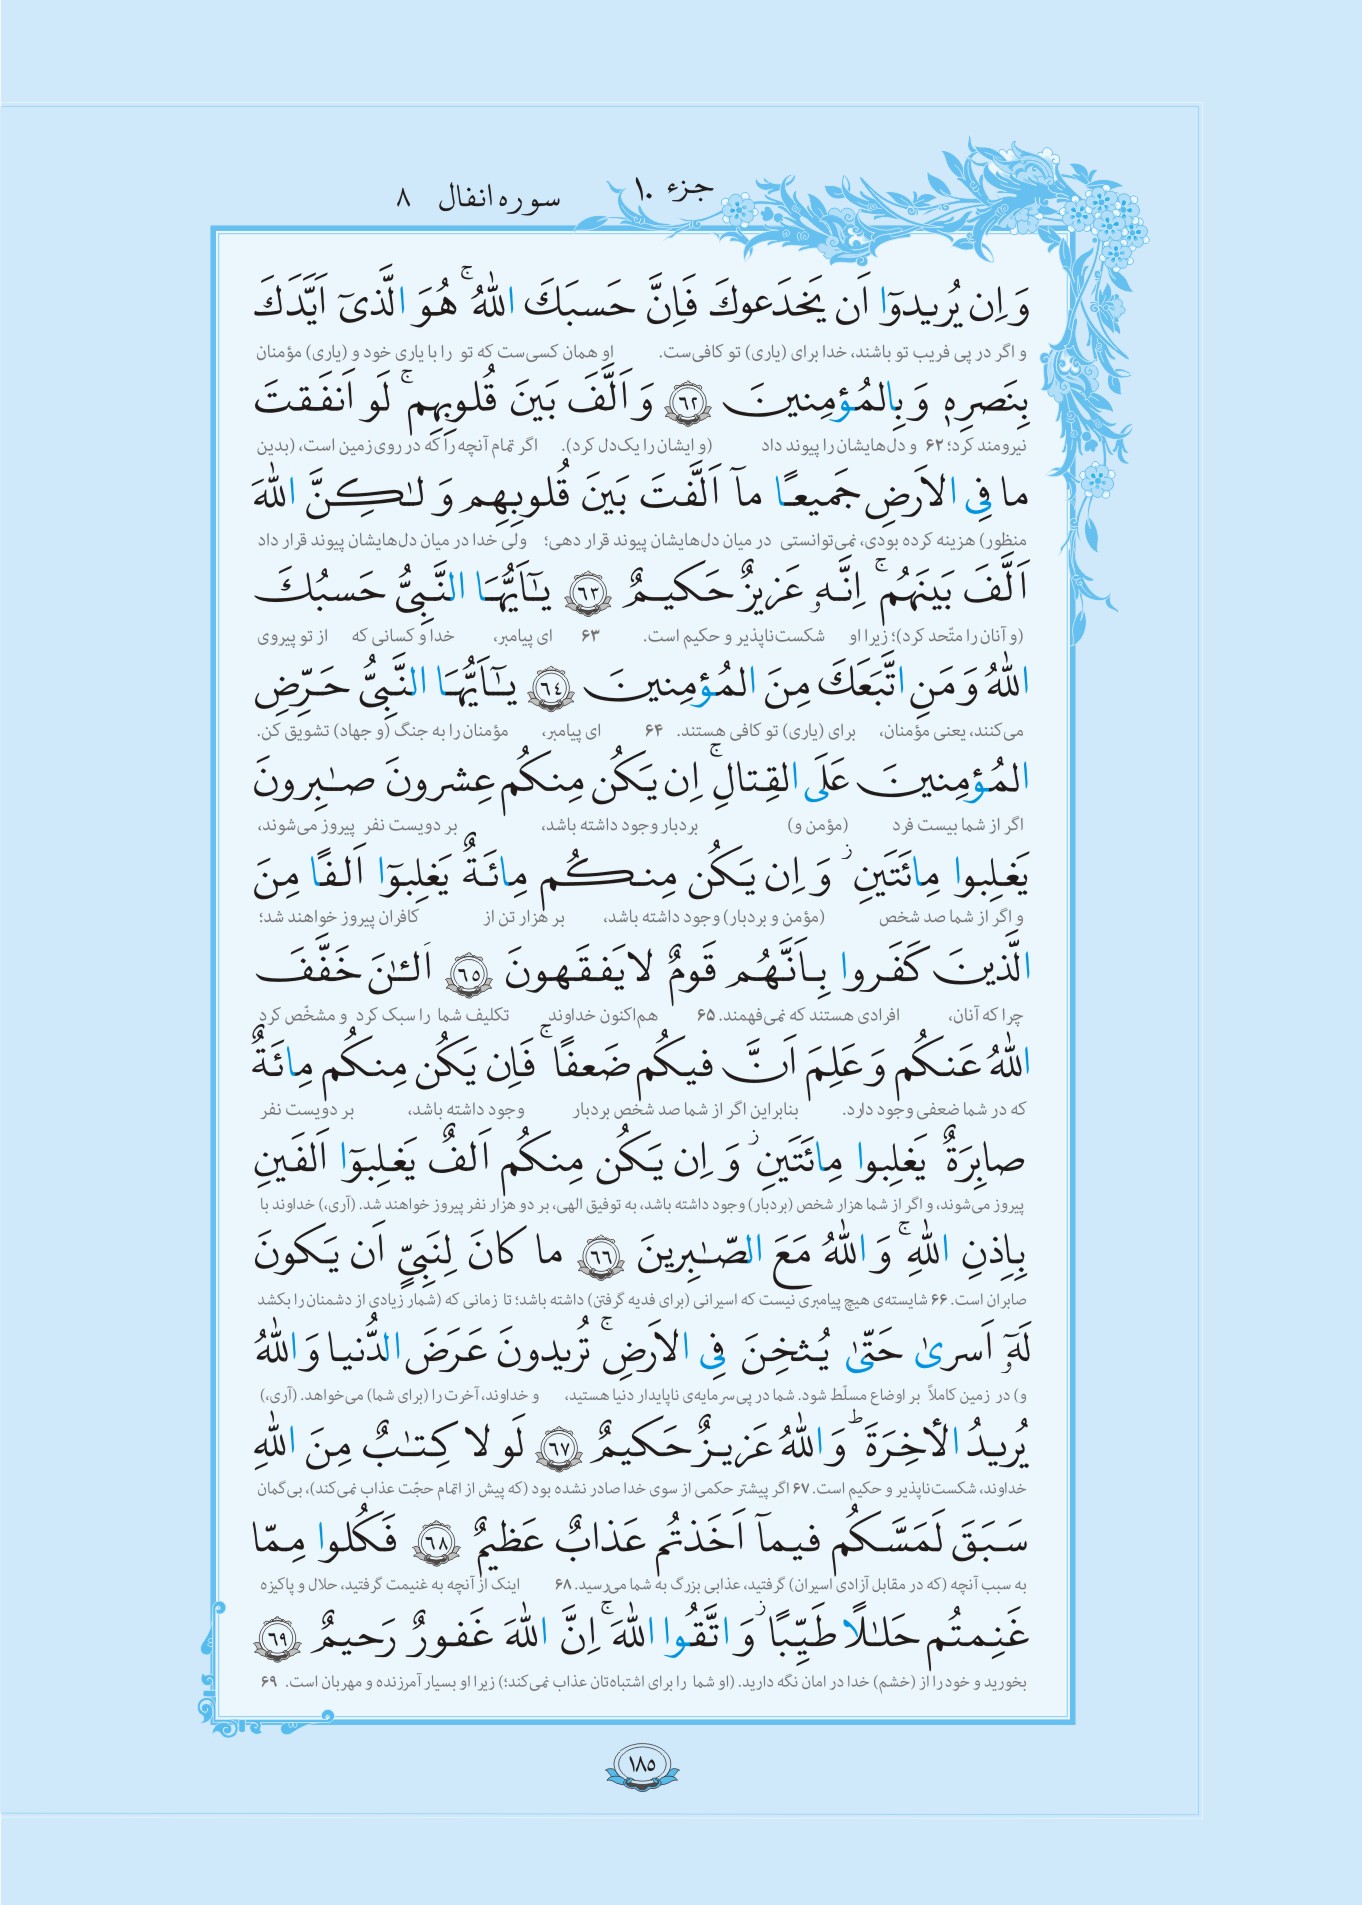 جزء ۱۰
سوره انفال ۸
وَ اِن یُریدوٓا اَن یَخدَعوكَ فَاِنَّ حَسبَكَ اللهُ ۚ هُوَ الَّذیٓ اَیَّدَكَ
و اگر در پی فریب تو باشند، خدا برای (یاری) تو کافی‌ست. او همان کسی‌ست که تو را با یاری خود و (یاری) مؤمنان
بِنَصرِهٖ وَ بِالمُؤمِنینَ ﴿٦٢﴾ وَ اَلَّفَ بَینَ قُلوبِهِم ۚ لَو اَنفَقتَ
نیرومند کرد؛ ۶۲ و دل‌هایشان را پیوند داد (و ایشان را یک‌دل کرد). اگر تمام آنچه را که در روی زمین است، (بدین
ما فِی الاَرضِ جَمیعًا مآ اَلَّفتَ بَینَ قُلوبِهِم وَ لـٰكِنَّ اللهَ
منظور) هزینه کرده بودی، نمی‌توانستی در میان دل‌هایشان پیوند قرار دهی؛ ولی خدا در میان دل‌هایشان پیوند قرار داد
اَلَّفَ بَینَهُم ۚ اِنَّهٗ عَزیزٌ حَكیمٌ ﴿٦٣﴾ یـٰٓاَیُّهَا النَّبِیُّ حَسبُكَ
(و آنان را متّحد کرد)؛ زیرا او شکست‌ناپذیر و حکیم است. ۶۳ ای پیامبر، خدا و کسانی که از تو پیروی
اللهُ وَ مَنِ اتَّبَعَكَ مِنَ المُؤمِنینَ ﴿٦٤﴾ یـٰٓاَیُّهَا النَّبِیُّ حَرِّضِ
می‌کنند، یعنی مؤمنان، برای (یاری) تو کافی هستند. ۶۴ ای پیامبر، مؤمنان را به جنگ (و جهاد) تشویق کن.
المُؤمِنینَ عَلَی القِتالِ ۚ اِن یَكُن مِنكُم عِشرونَ صـٰبِرونَ
اگر از شما بیست فرد (مؤمن و) بردبار وجود داشته باشد، بر دویست نفر پیروز می‌شوند،
یَغلِبوا مِائَتَینِ ۚ وَ اِن یَكُن مِنكُم مِائَةٌ یَغلِبوٓا اَلفًا مِنَ
و اگر از شما صد شخص (مؤمن و بردبار) وجود داشته باشد، بر هزار تن از کافران پیروز خواهند شد؛
الَّذینَ كَفَروا بِاَنَّهُم قَومٌ لا یَفقَهونَ ﴿٦٥﴾ اَلـٰٔنَ خَفَّفَ
چرا که آنان، افرادی هستند که نمی‌فهمند. ۶۵ هم‌اکنون خداوند تکلیف شما را سبک کرد و مشخّص کرد
اللهُ عَنكُم وَ عَلِمَ اَنَّ فیكُم ضَعفًا ۚ فَاِن یَكُن مِنكُم مِائَةٌ
که در شما ضعفی وجود دارد. بنابراین اگر از شما صد شخص بردبار وجود داشته باشد، بر دویست نفر
صابِرَةٌ یَغلِبوا مِائَتَینِ ۚ وَ اِن یَكُن مِنكُم اَلفٌ یَغلِبوٓا اَلفَینِ
پیروز می‌شوند، و اگر از شما هزار شخص (بردبار) وجود داشته باشد، به توفیق الهی، بر دو هزار نفر پیروز خواهند شد. (آری،) خداوند با
بِاِذنِ اللهِ ۚ وَ اللهُ مَعَ الصّـٰبِرینَ ﴿٦٦﴾ ما كانَ لِنَبِیٍّ اَن یَكونَ
صابران است. ۶۶ شایسته‌ی هیچ پیامبری نیست که اسیرانی (برای فدیه گرفتن) داشته باشد؛ تا زمانی که (شمار زیادی از دشمنان را بکشد
لَهٗٓ اَسریٰ حَتّیٰ یُثخِنَ فِی الاَرضِ ۚ تُریدونَ عَرَضَ الدُّنیا وَ اللهُ
و) در زمین کاملاً بر اوضاع مسلّط شود. شما در پی سرمایه‌ی ناپایدار دنیا هستید، و خداوند، آخرت را (برای شما) می‌خواهد. (آری،)
یُریدُ الأخِرَةَ ؕ وَ اللهُ عَزیزٌ حَكیمٌ ﴿٦٧﴾ لَو لا كِتـٰبٌ مِنَ اللهِ
خداوند، شکست‌ناپذیر و حکیم است. ۶۷ اگر پیشتر حکمی از سوی خدا صادر نشده بود (که پیش از اتمام حجّت عذاب نمی‌کند)، بی‌گمان
سَبَقَ لَمَسَّكُم فیمآ اَخَذتُم عَذابٌ عَظیمٌ ﴿٦٨﴾ فَكُلوا مِمّا
به سبب آنچه (که در مقابل آزادی اسیران) گرفتید، عذابی بزرگ به شما می‌رسید. ۶۸ اینک از آنچه به غنیمت گرفتید، حلال و پاکیزه
غَنِمتُم حَلـٰلًا طَیِّبًا ۚ وَ اتَّقُوا اللهَ ۚ اِنَّ اللهَ غَفورٌ رَحیمٌ ﴿٦٩﴾
بخورید و خود را از (خشم) خدا در امان نگه دارید. (او شما را برای اشتباه‌تان عذاب نمی‌کند؛) زیرا او بسیار آمرزنده و مهربان است. ۶۹
۱۸۵